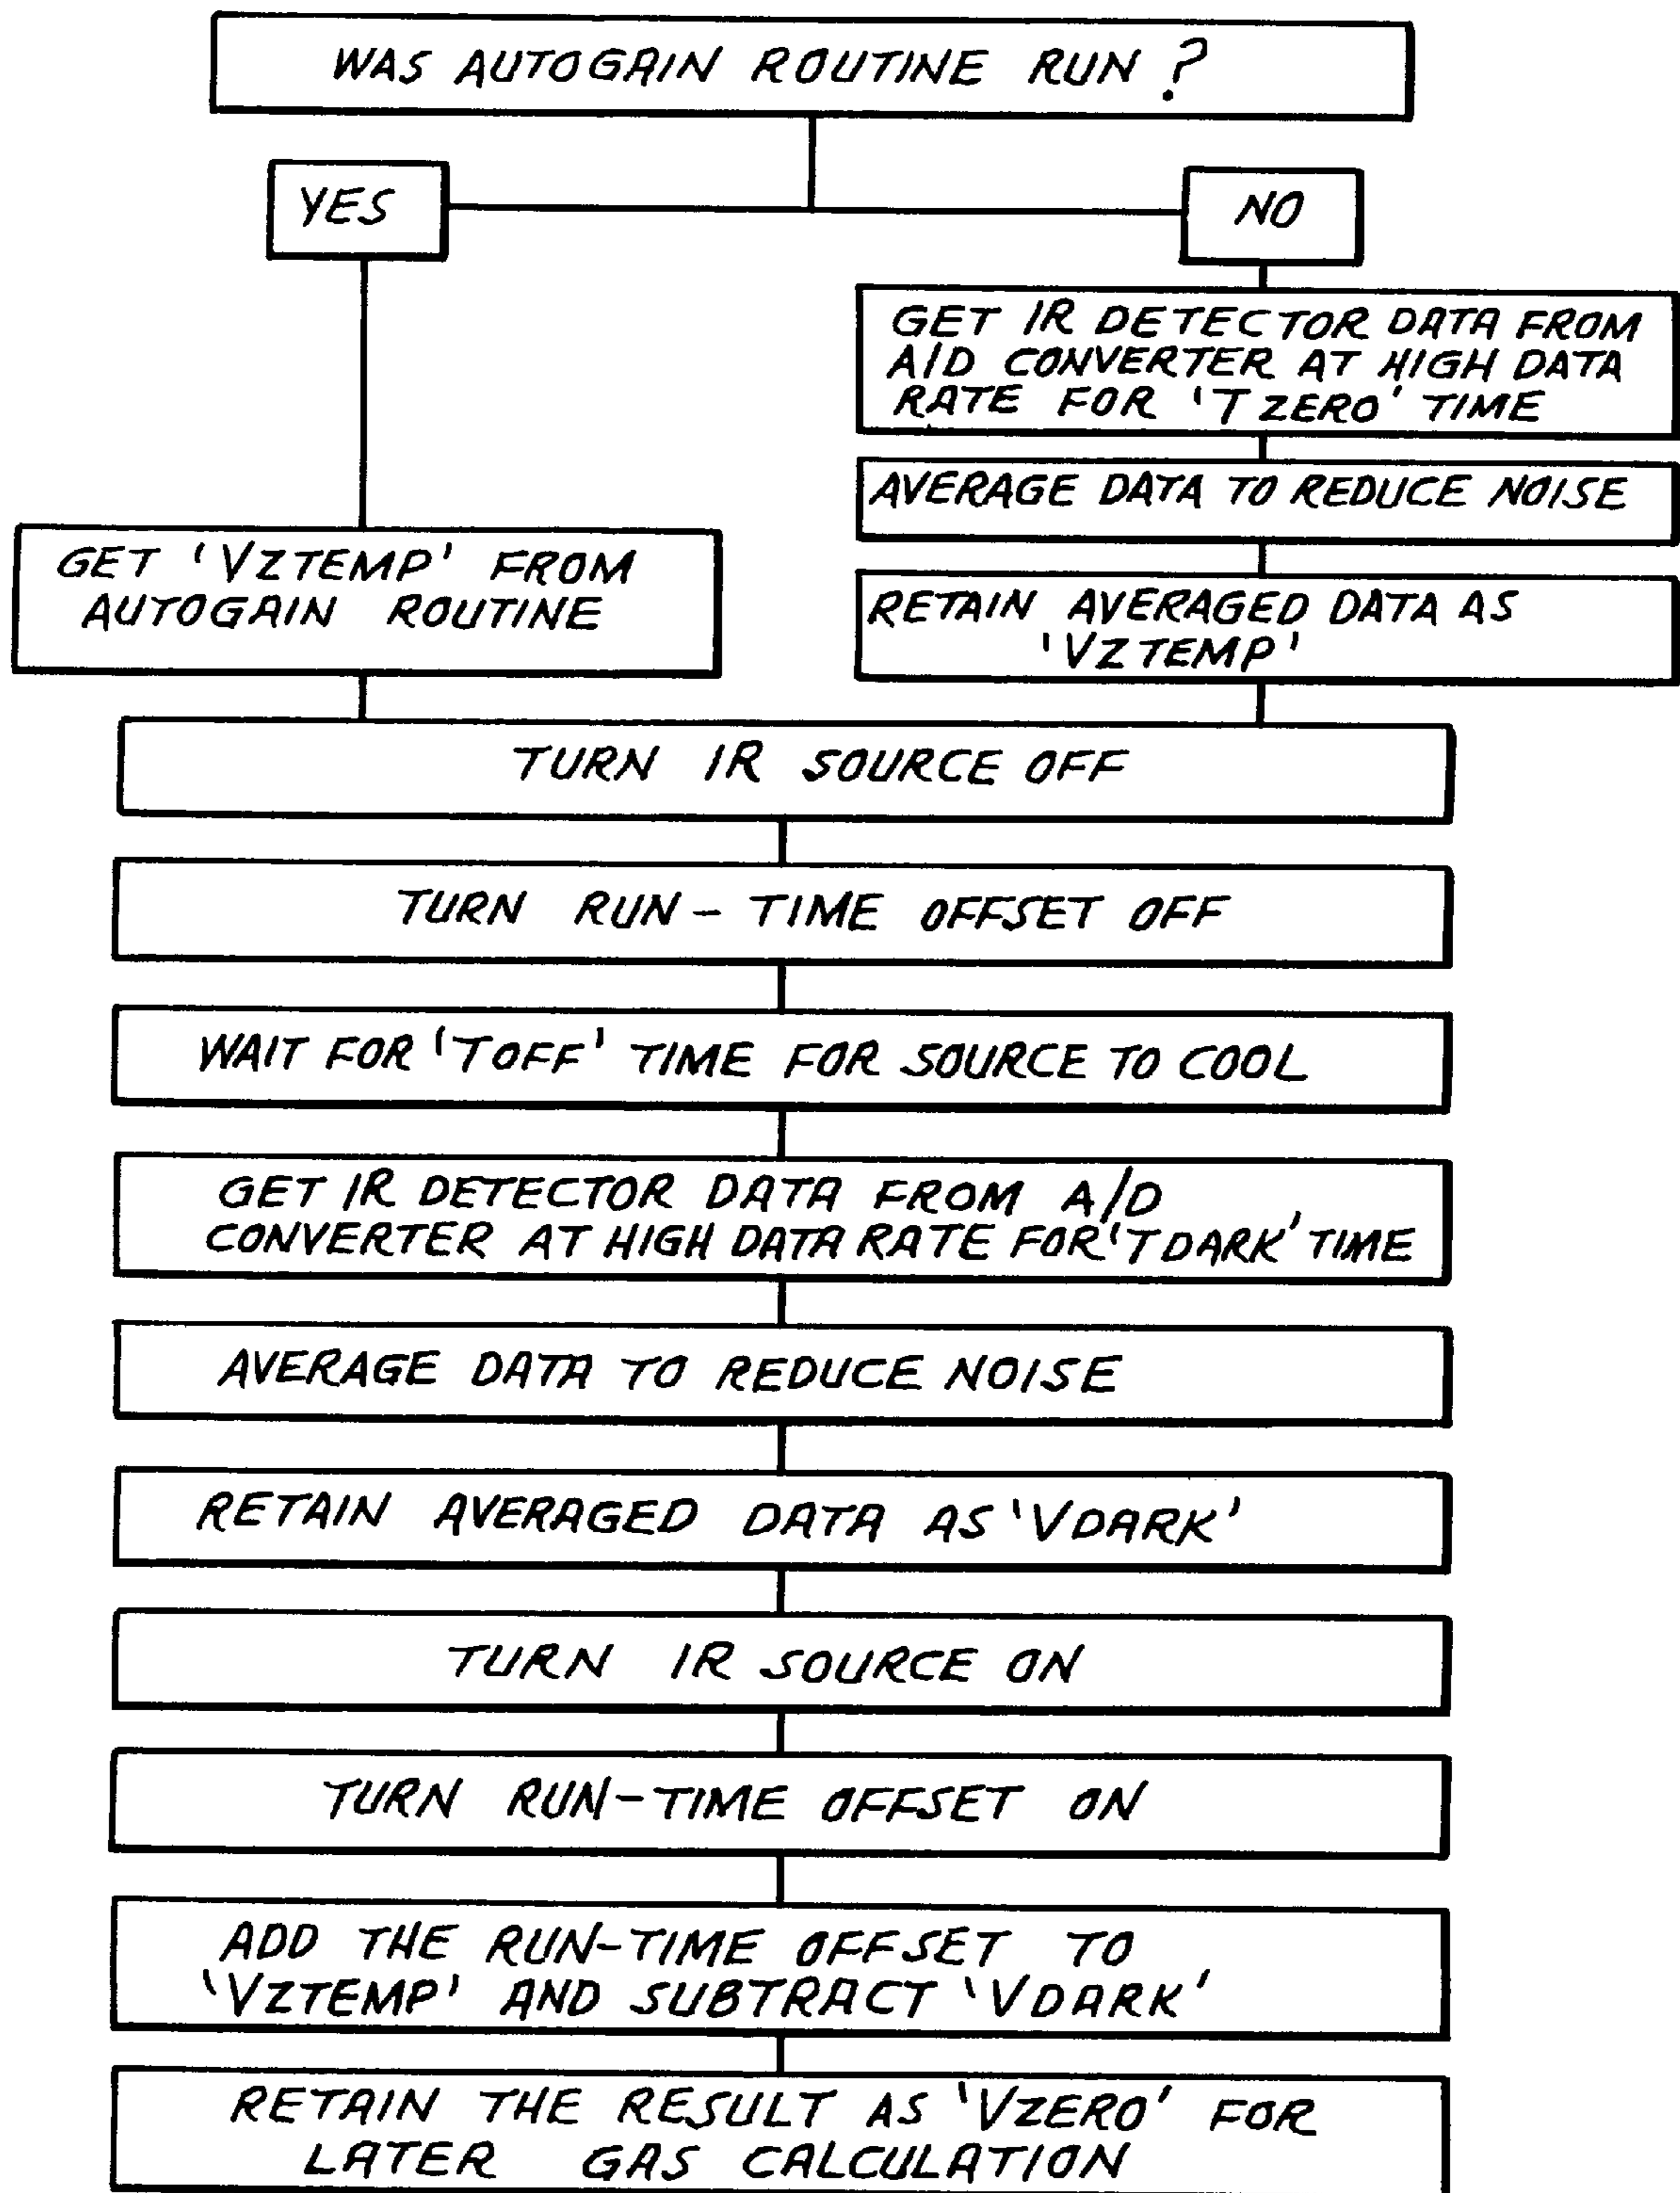 WAS AUTOGAIN ROUTINE RUN ?
YES
NO
GET IR DETECTOR DATA FROM
A/D CONVERTER AT HIGH DATA
RATE FOR 'TZERO' TIME
AVERAGE DATA TO REDUCE NOISE
GET 'VZTEMP' FROM
AUTOGAIN ROUTINE
RETAIN AVERAGED DATA AS
'VZTEMP'
TURN IR SOURCE OFF
TURN RUN-TIME OFFSET OFF
WAIT FOR 'TOFF' TIME FOR SOURCE TO COOL
GET IR DETECTOR DATA FROM A/D
CONVERTER AT HIGH DATA RATE FOR 'TDARK' TIME
AVERAGE DATA TO REDUCE NOISE
RETAIN AVERAGED DATA AS 'VDARK'
TURN IR SOURCE ON
TURN RUN-TIME OFFSET ON
ADD THE RUN-TIME OFFSET TO
'VZTEMP' AND SUBTRACT 'VDARK'
RETAIN THE RESULT AS 'VZERO' FOR
LATER GAS CALCULATION